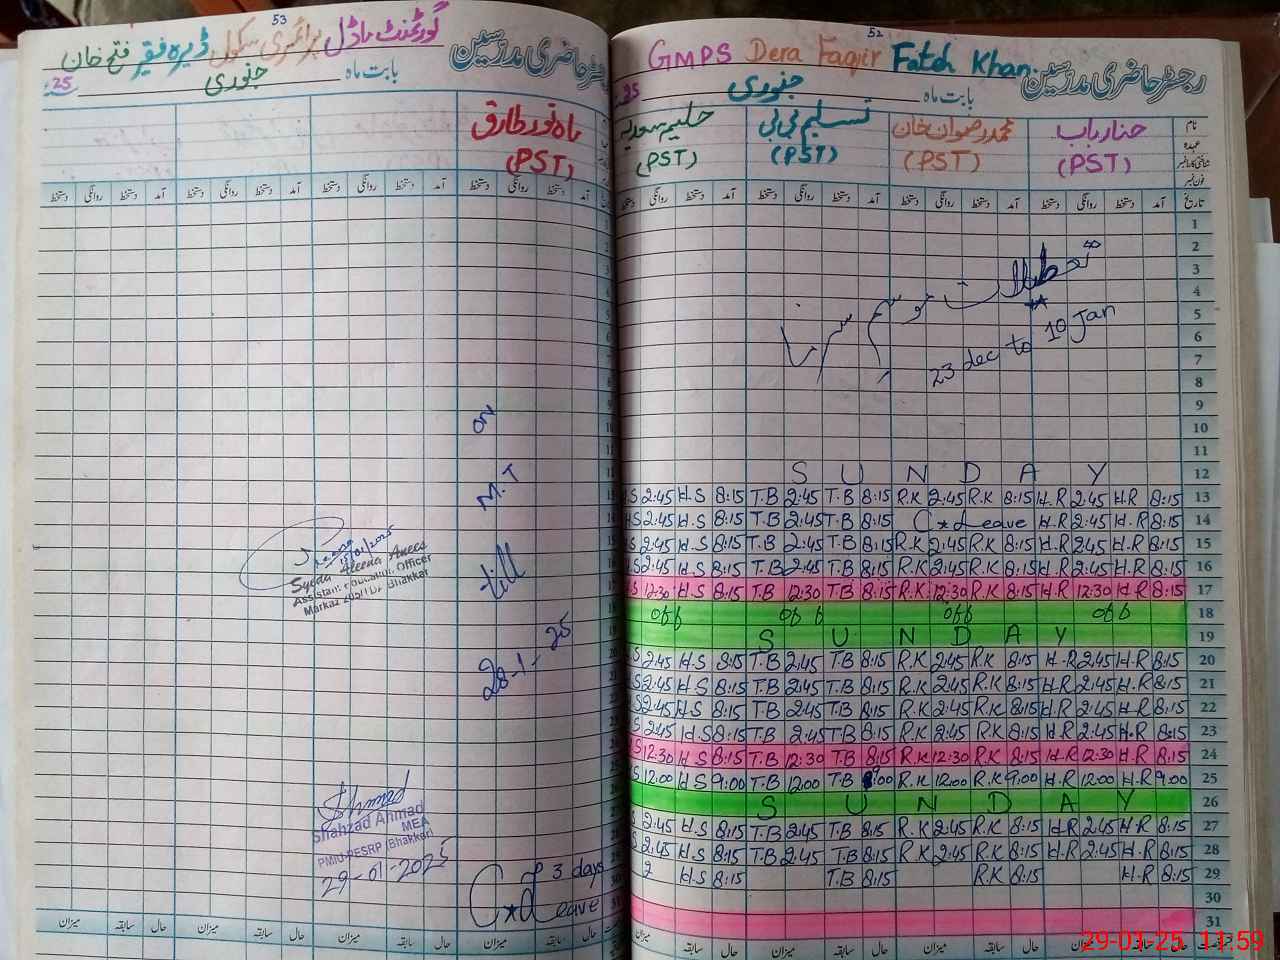 53
گورنمنٹ ماڈل پرائمری سکول ڈیرہ فقیر فتح خان
رجسٹر حاضری مدرسین
بابت ماہ جنوری 25
ماہ نور طارق
(PST)
آمد دستخط روانگی دستخط آمد دستخط روانگی دستخط آمد دستخط روانگی دستخط آمد دستخط روانگی دستخط
ON
M.T
till
28-1-25
15/01/2025
Syeda Aleena Anees
Assistant Education Officer
Markaz
Bhakkar
Shahzad Ahmad
MEA
PMIU-PESRP (Bhakkar)
29-01-2025
3 days
C*Leave
حال سابقہ میزان حال سابقہ میزان حال سابقہ میزان حال سابقہ میزان
52
GMPS Dera Faqir Fateh Khan
رجسٹر حاضری مدرسین
بابت ماہ جنوری 25
نام حنا رباب محمد رضوان خان تسلیم بی بی حلیمہ سعدیہ
عہدہ (PST) (PST) (PST) (PST)
شناختی کارڈ نمبر
فون نمبر
تاریخ آمد دستخط روانگی دستخط آمد دستخط روانگی دستخط آمد دستخط روانگی دستخط آمد دستخط روانگی دستخط
1
2
3
4
5
6
7
8
9
10
11
تعطیلات موسم سرما
23 dec to 10 Jan
SUNDAY 12
H.S 2:45 H.S 8:15 T.B 2:45 T.B 8:15 R.K 2:45 R.K 8:15 H.R 2:45 H.R 8:15 13
H.S 2:45 H.S 8:15 T.B 2:45 T.B 8:15 C*Leave H.R 2:45 H.R 8:15 14
H.S 2:45 H.S 8:15 T.B 2:45 T.B 8:15 R.K 2:45 R.K 8:15 H.R 2:45 H.R 8:15 15
H.S 2:45 H.S 8:15 T.B 2:45 T.B 8:15 R.K 2:45 R.K 8:15 H.R 2:45 H.R 8:15 16
H.S 12:30 H.S 8:15 T.B 12:30 T.B 8:15 R.K 12:30 R.K 8:15 H.R 12:30 H.R 8:15 17
off off off off 18
SUNDAY 19
S 2:45 H.S 8:15 T.B 2:45 T.B 8:15 R.K 2:45 R.K 8:15 H.R 2:45 H.R 8:15 20
S 2:45 H.S 8:15 T.B 2:45 T.B 8:15 R.K 2:45 R.K 8:15 H.R 2:45 H.R 8:15 21
S 2:45 H.S 8:15 T.B 2:45 T.B 8:15 R.K 2:45 R.K 8:15 H.R 2:45 H.R 8:15 22
S 2:45 H.S 8:15 T.B 2:45 T.B 8:15 R.K 2:45 R.K 8:15 H.R 2:45 H.R 8:15 23
S 12:30 H.S 8:15 T.B 12:30 T.B 8:15 R.K 12:30 R.K 8:15 H.R 12:30 H.R 8:15 24
S 12:00 H.S 9:00 T.B 12:00 T.B 9:00 R.K 12:00 R.K 9:00 H.R 12:00 H.R 9:00 25
SUNDAY 26
S 2:45 H.S 8:15 T.B 2:45 T.B 8:15 R.K 2:45 R.K 8:15 H.R 2:45 H.R 8:15 27
S 2:45 H.S 8:15 T.B 2:45 T.B 8:15 R.K 2:45 R.K 8:15 H.R 2:45 H.R 8:15 28
2 H.S 8:15 T.B 8:15 R.K 8:15 H.R 8:15 29
30
31
حال سابقہ میزان حال سابقہ میزان حال سابقہ میزان حال سابقہ میزان
29-01-25 11:59